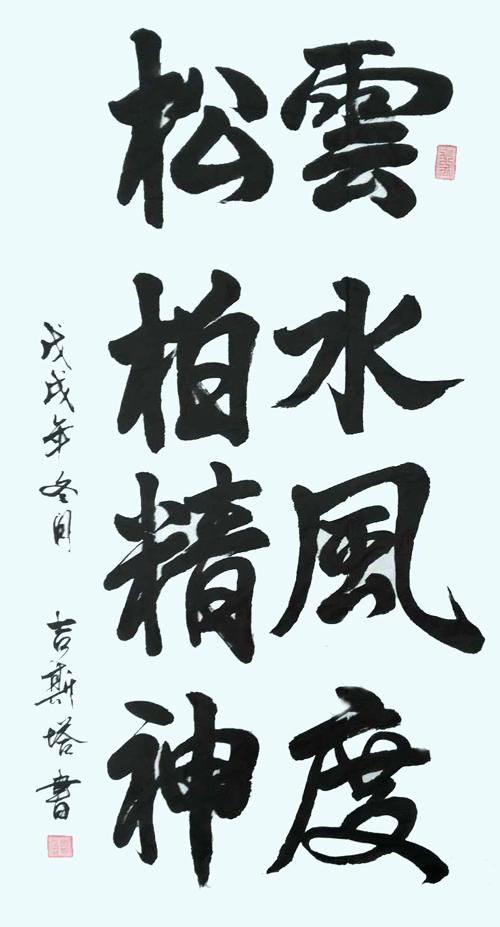 雲水風度
松柏精神
戊戌年冬月 吉斯塔書